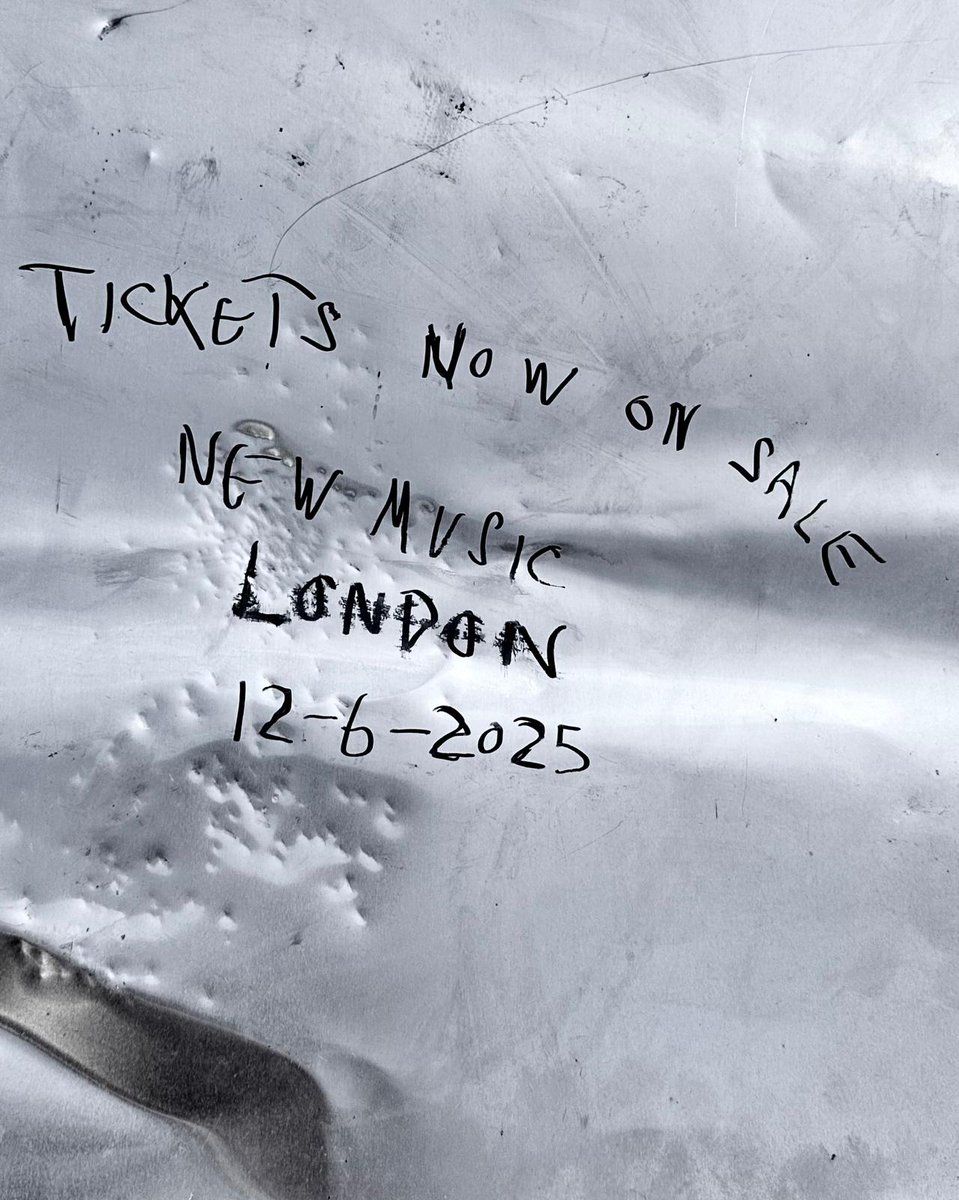 TICKETS NOW ON SALE
NEW MUSIC
LONDON
12-6-2025